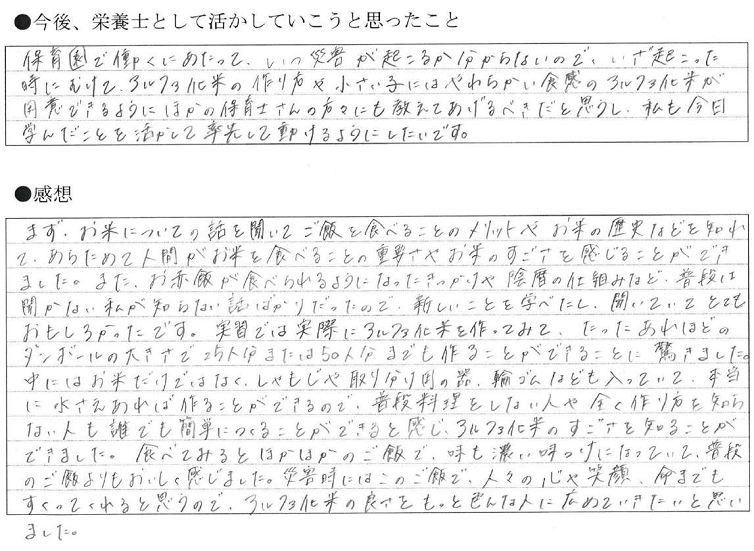 ●今後、栄養士として活かしていこうと思ったこと
保育園で働くにあたって、いつ災害が起こるか分からないので、いざ起こった
時にむけて、アルファ化米の作り方や小さい子にはやわらかい食感のアルファ化米が
用意できるようにほかの保育士さんの方々にも教えてあげるべきだと思うし、私も今日
学んだことを活かして率先して動けるようにしたいです。
●感想
まず、お米についての話を聞いてご飯を食べることのメリットやお米の歴史などを知れ
て、あらためて人間がお米を食べることの重要さやお米のすごさを感じることができ
ました。また、お赤飯が食べられるようになったきっかけや陰暦の仕組みなど、普段は
聞かない私が知らない話ばかりだったので、新しいことを学べたし、聞いていてとても
おもしろかったです。実習では実際にアルファ化米を作ってみて、たったあれほどの
ダンボールの大きさで25人分または50人分までも作ることができることに驚きました。
中にはお米だけではなく、しゃもじや取り分け用の器、輪ゴムなども入っていて、本当
に水さえあれば作ることができるので、普段料理をしない人や全く作り方を知ら
ない人も誰でも簡単につくることができると感じ、アルファ化米のすごさを知ることが
できました。食べてみるとほかほかのご飯で、味も濃い味つけになっていて、普段
のご飯よりもおいしく感じました。災害時にはこのご飯で、人々の心や笑顔、命までも
すくってくれると思うので、アルファ化米の良さをもっと色んな人に広めていきたいと思い
ました。